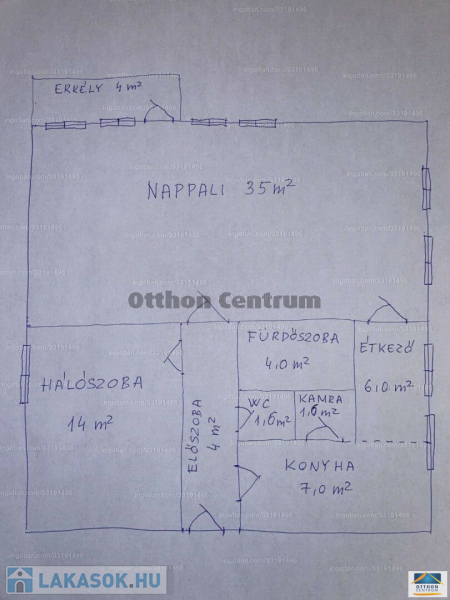 ERKÉLY 4 m²
NAPPALI 35 m²
Otthon Centrum
FÜRDŐSZOBA
4,0 m²
ÉTKEZŐ
6,0 m²
HÁLÓSZOBA
14 m²
ELŐSZOBA
4 m²
WC
1,6 m²
KAMRA
1,6 m²
KONYHA
7,0 m²
LAKASOK.HU
OTTHON
CENTRUM